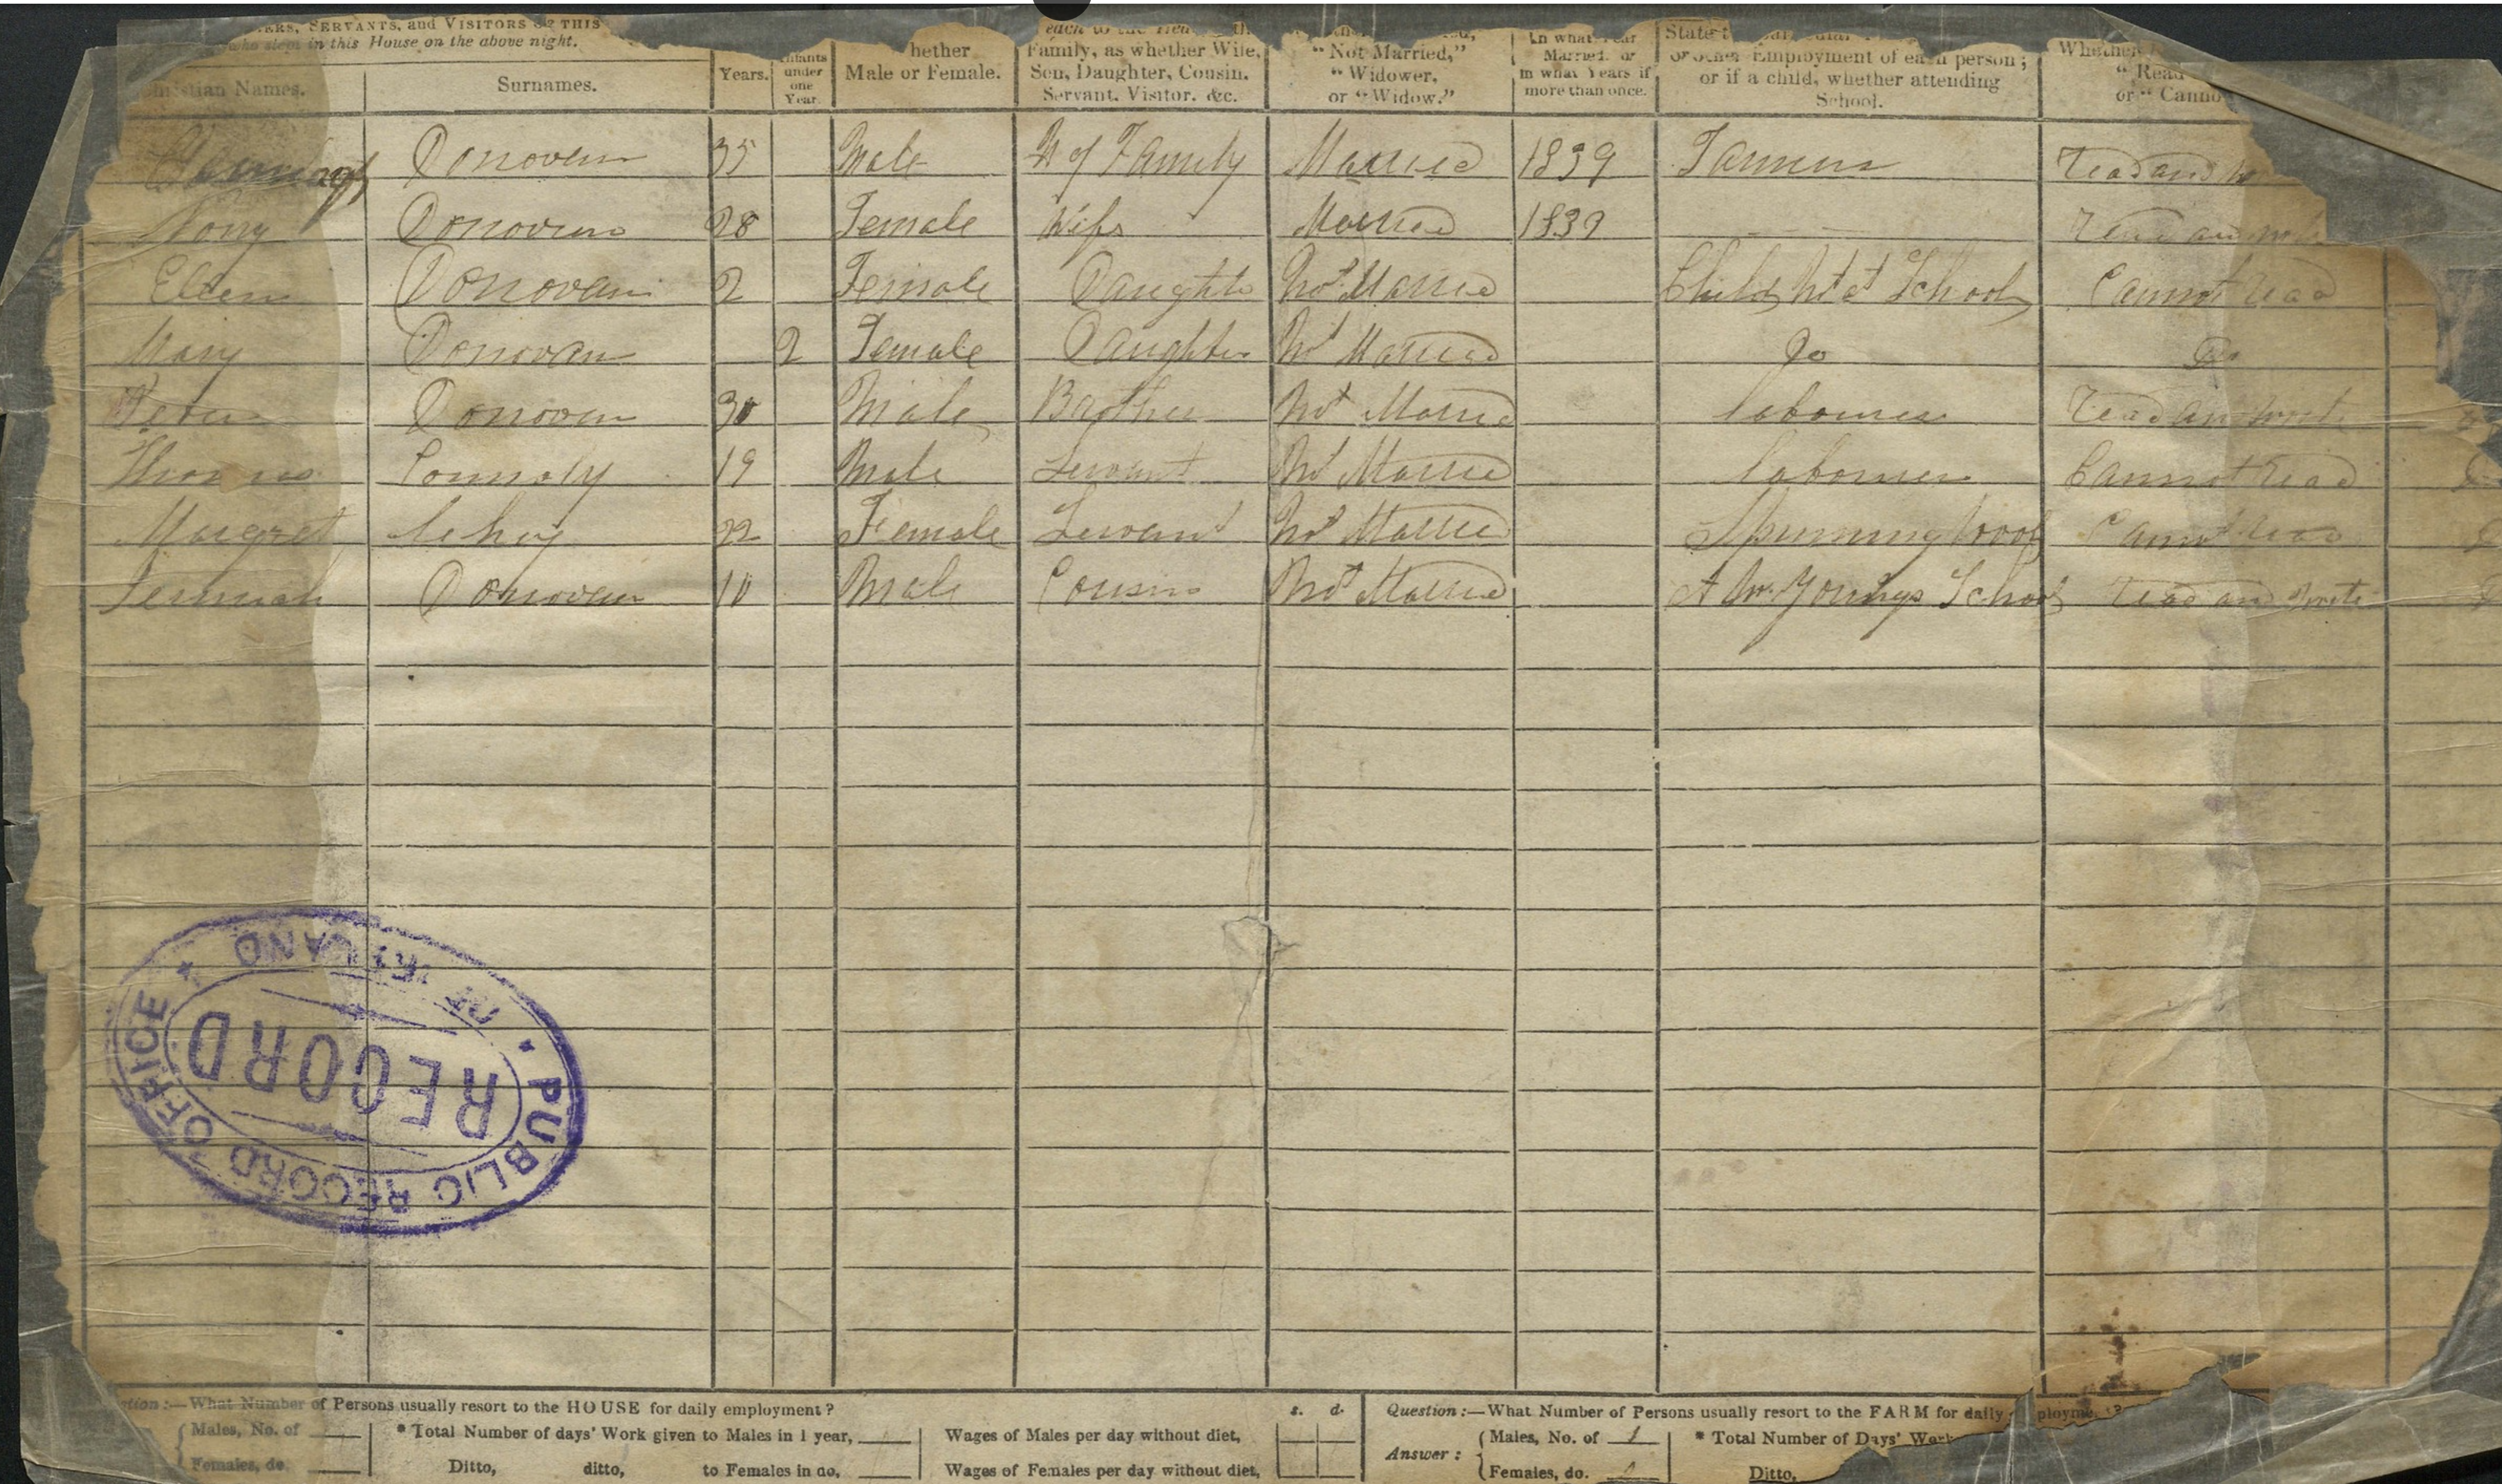 SERVANTS, and VISITORS OF THIS
who slept in this House on the above night.
Christian Names.
Surnames.
Years.
Infants
under
one
Year.
hether
Male or Female.
each to the Head
Family, as whether Wife,
Son, Daughter, Cousin,
Servant, Visitor, &c.
"Not Married,"
"Widower,
or "Widow."
In what Year
Married, or
in what Years if
more than once.
State
or other Employment of each person;
or if a child, whether attending
School.
Whether
"Read
or "Canno
Donovan 35 Male H of Family Married 1839 Farmer Read and
Nory Donovan 28 Female Wife Married 1839 Read and
Ellen Donovan 2 Female Daughter Not Married Child Not at School Cannot read
Mary Donovan 2 Female Daughter Not Married Do Do
Donovan 30 Male Brother Not Married labourer read and write
Thomas Connoly 19 Male Servant Not Married labourer Cannot read
Margret lehey 22 Female Servant Not Married Spinning Wool Cannot read
Jermiah Donovan 10 Male Cousin Not Married At Mr. Youngs School read and write
PUBLIC RECORD OFFICE
OF IRELAND
RECORD
tion:—What Number of Persons usually resort to the HOUSE for daily employment? s. d. Question:—What Number of Persons usually resort to the FARM for daily employme
Males, No. of * Total Number of days' Work given to Males in 1 year, Wages of Males per day without diet, Answer: Males, No. of 1 * Total Number of Days' Work
Females, do. Ditto, ditto, to Females in do, Wages of Females per day without diet, Females, do. Ditto,